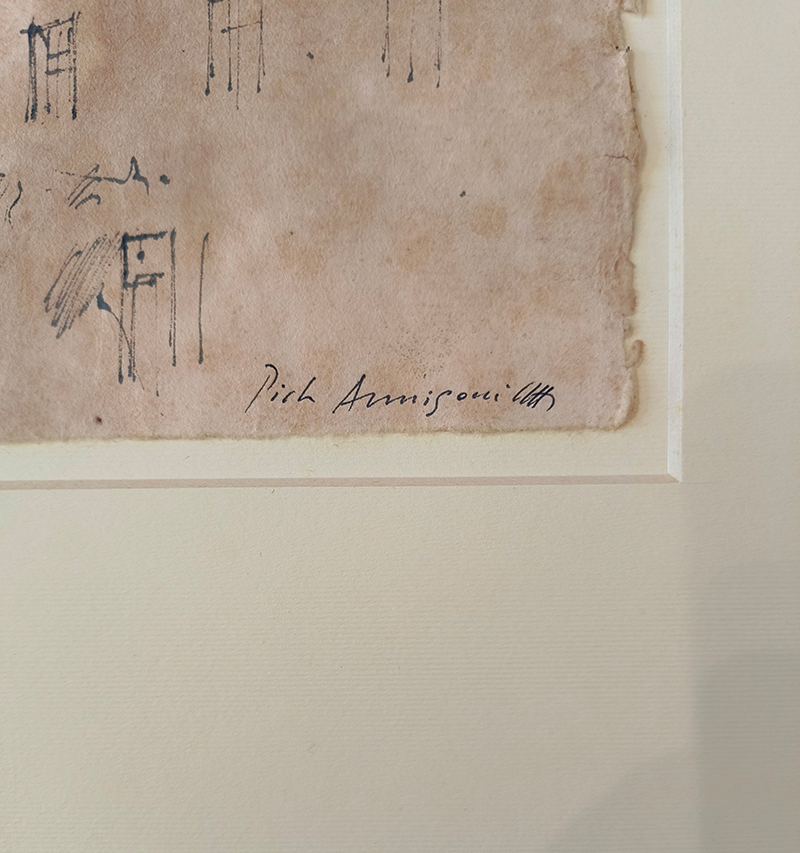 Pich Annigoni